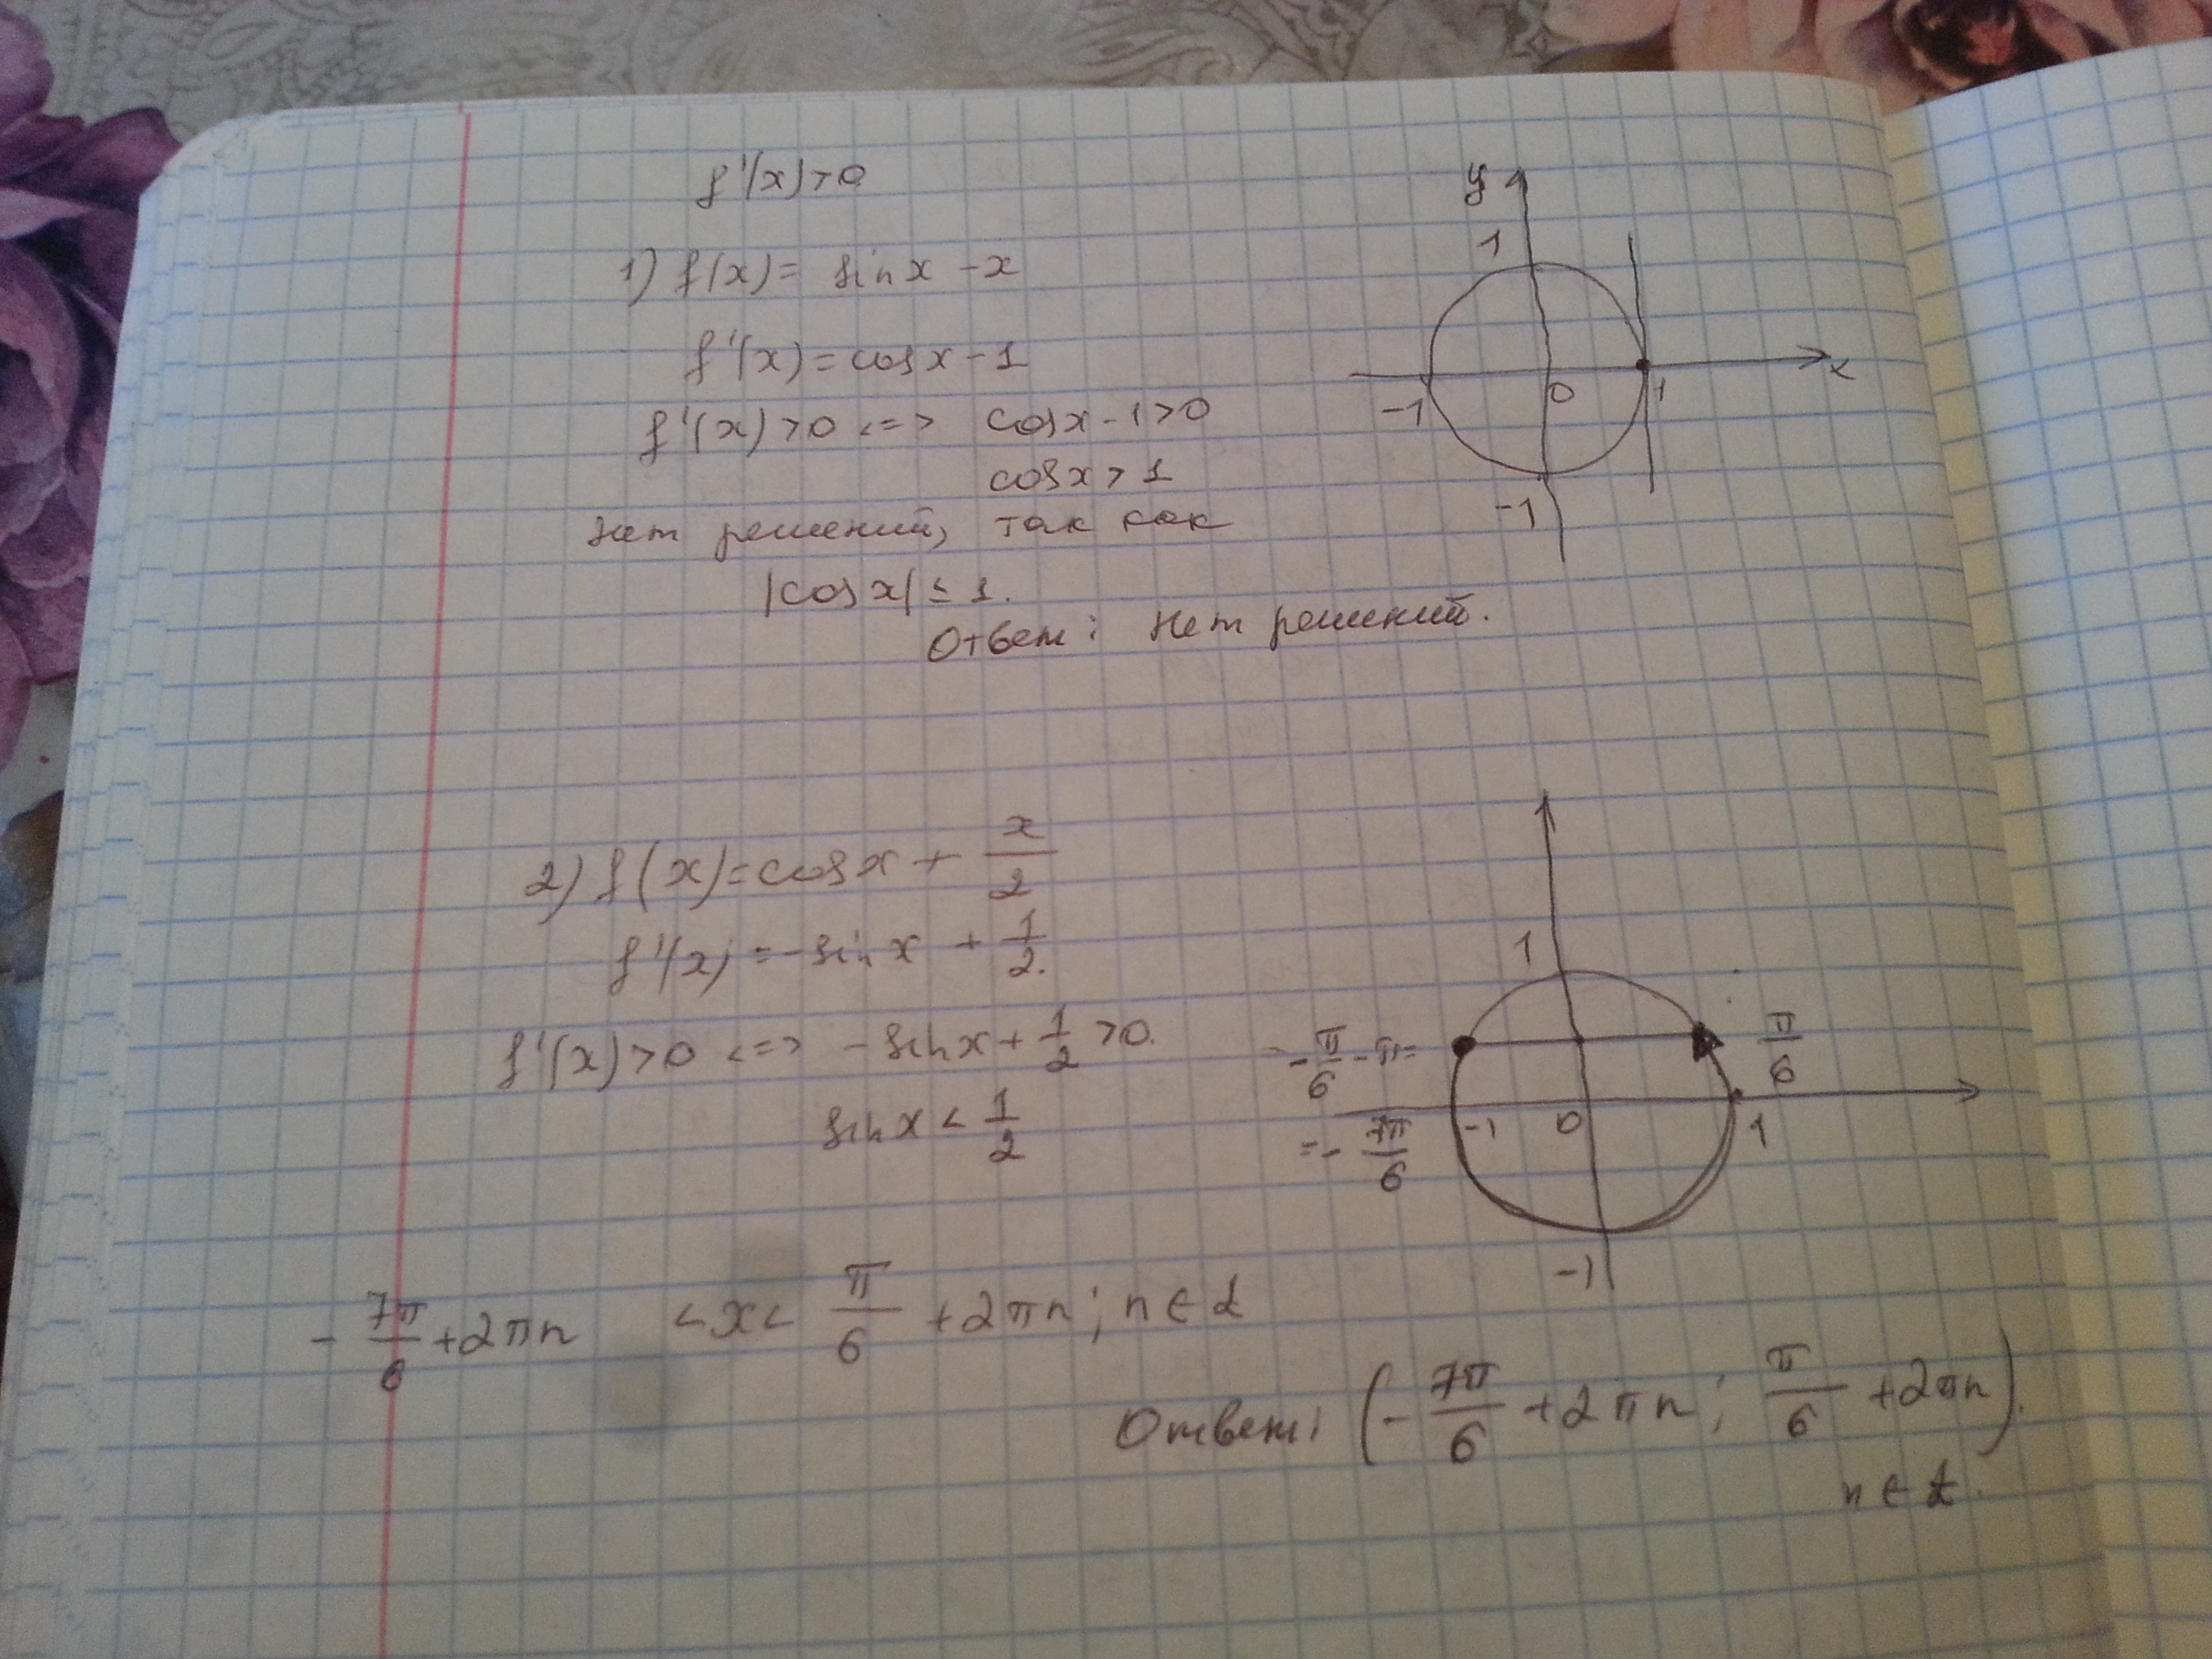 f'(x)>0
1) f(x) = sin x - x
f'(x) = cos x - 1
f'(x) > 0 <=> cos x - 1 > 0
cos x > 1
нет решений, так как
|cos x| ≤ 1.
Ответ: нет решений.
y
1
-1
0
1
x
-1
2) f(x) = cos x + x/2
f'(x) = -sin x + 1/2.
f'(x) > 0 <=> -sin x + 1/2 > 0.
sin x < 1/2
1
-π/6 - π =
= -7π/6
π/6
-1
0
1
-1
-7π/6 + 2πn < x < π/6 + 2πn; n ∈ Z
Ответ: (-7π/6 + 2πn; π/6 + 2πn).
n ∈ Z.